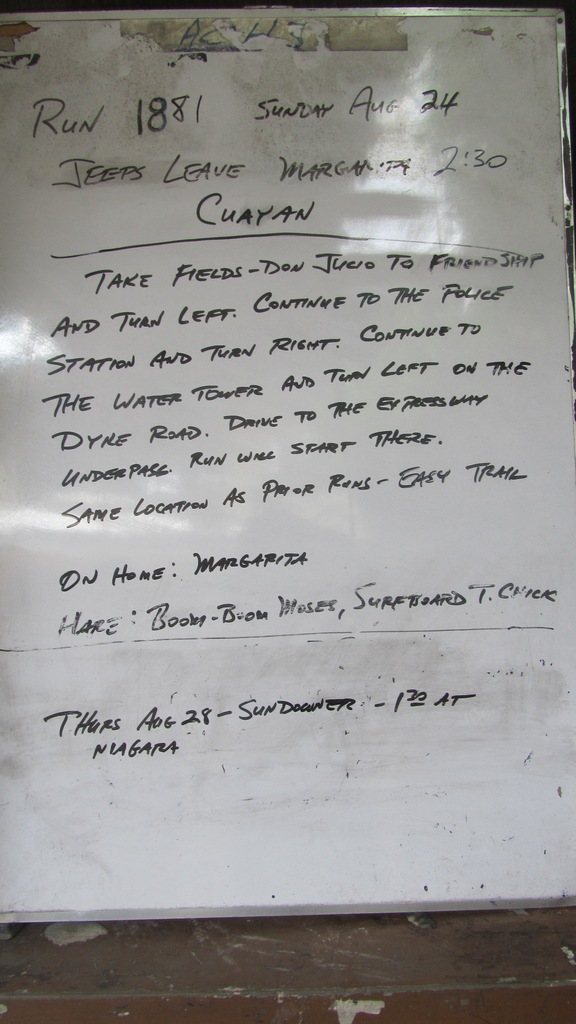 RUN 1881 SUNDAY AUG 24
JEEPS LEAVE MARGARITA 2:30
CUAYAN
TAKE FIELDS-DON JUCIO TO FRIENDSHIP
AND TURN LEFT. CONTINUE TO THE POLICE
STATION AND TURN RIGHT. CONTINUE TO
THE WATER TOWER AND TURN LEFT ON THE
DYKE ROAD. DRIVE TO THE EXPRESSWAY
UNDERPASS. RUN WILL START THERE.
SAME LOCATION AS PRIOR RUNS - EASY TRAIL
ON HOME: MARGARITA
HARE: BOOM-BOOM MOSES, SURFBOARD T. CHICK
THURS AUG 28 - SUNDOWNER - 1 30 AT
NIAGARA